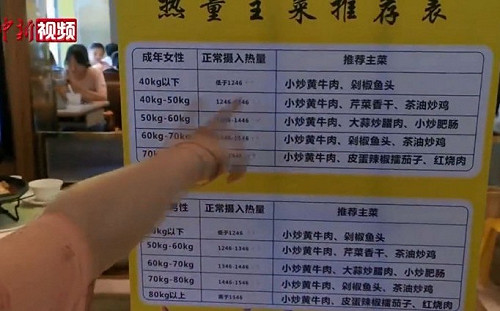 中新视频
热量主菜推荐表
成年女性 正常摄入热量 推荐主菜
40kg以下 低于1246 小炒黄牛肉、剁椒鱼头
40kg-50kg 1246-1346 小炒黄牛肉、芹菜香干、茶油炒鸡
50kg-60kg -1446 小炒黄牛肉、大蒜炒腊肉、小炒肥肠
60kg-70kg -1546 小炒黄牛肉、剁椒鱼头、茶油炒鸡
70k 小炒黄牛肉、皮蛋辣椒擂茄子、红烧肉
男性 正常摄入热量 推荐主菜
kg以下 低于1246 小炒黄牛肉、剁椒鱼头
50kg-60kg 1246-1346 小炒黄牛肉、芹菜香干、茶油炒鸡
60kg-70kg 1346-1446 小炒黄牛肉、大蒜炒腊肉、小炒肥肠
70kg-80kg 1446-1546 小炒黄牛肉、剁椒鱼头、茶油炒鸡
80kg以上 高于1546 小炒黄牛肉、皮蛋辣椒擂茄子、红烧肉